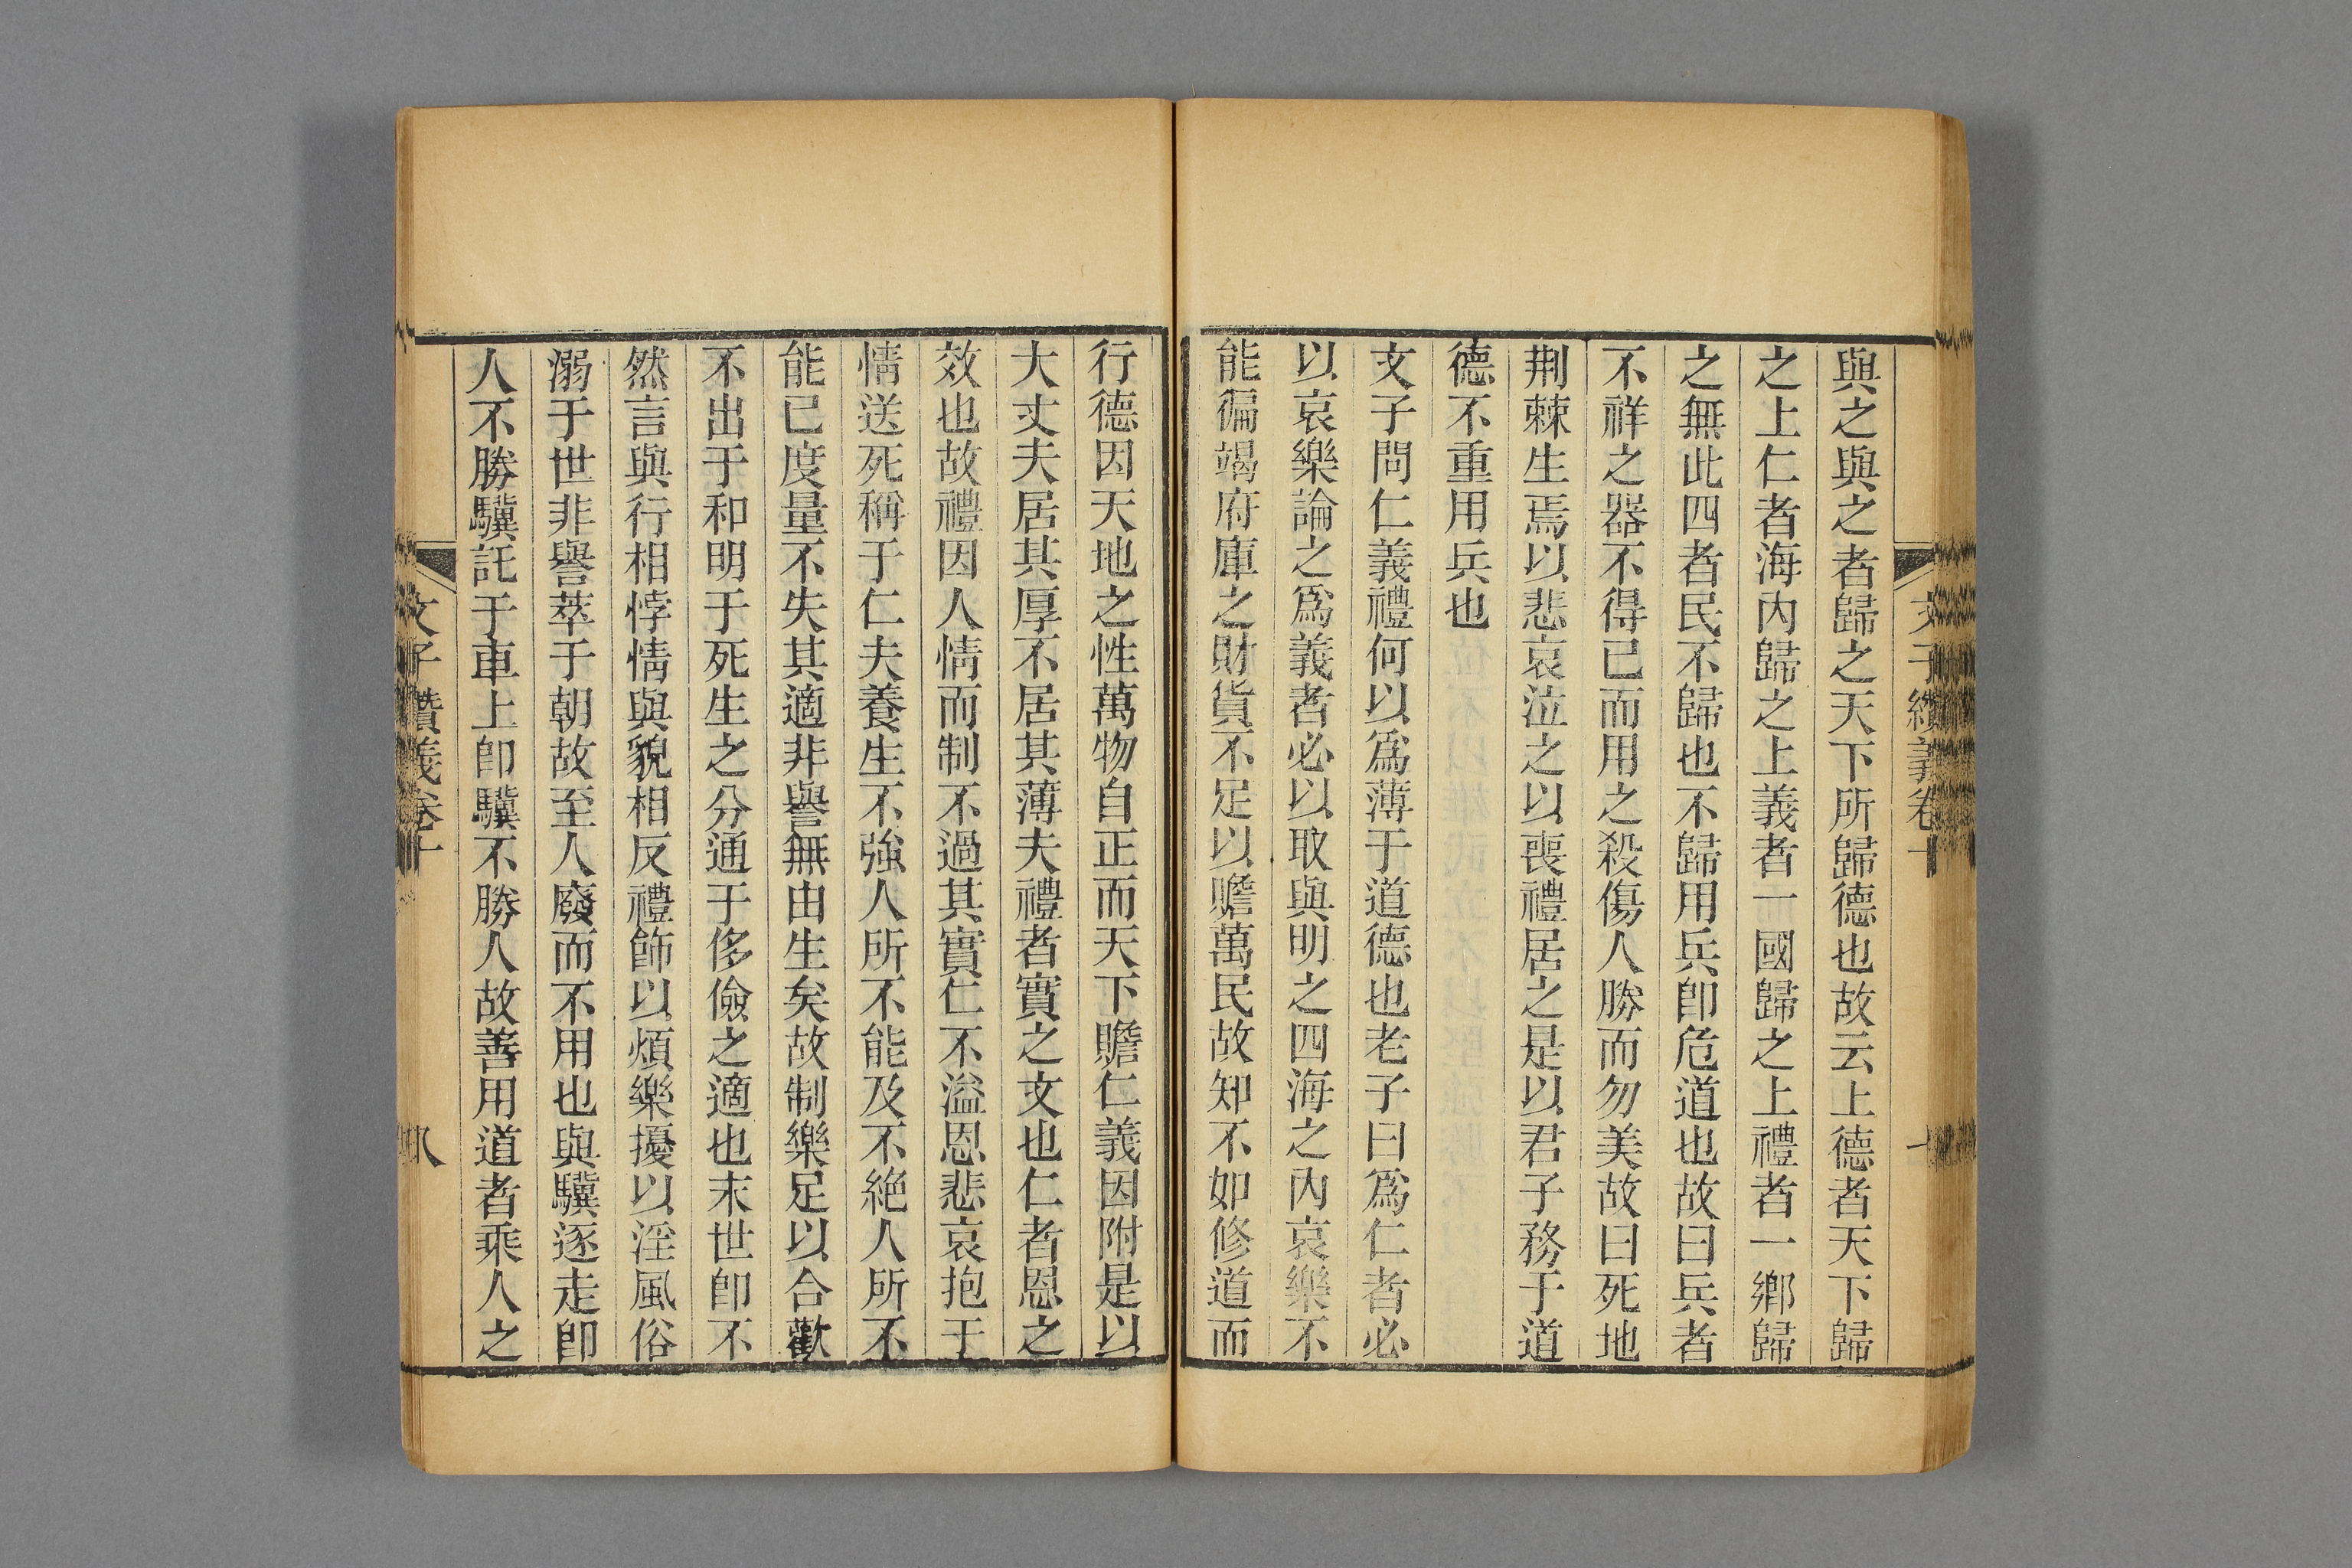 文子纘義卷十
七
與之與之者歸之天下所歸德也故云上德者天下歸
之上仁者海內歸之上義者一國歸之上禮者一鄉歸
之無此四者民不歸也不歸用兵卽危道也故曰兵者
不祥之器不得已而用之殺傷人勝而勿美故曰死地
荆棘生焉以悲哀泣之以喪禮居之是以君子務于道
德不重用兵也
文子問仁義禮何以爲薄于道德也老子曰爲仁者必
以哀樂論之爲義者必以取與明之四海之內哀樂不
能徧竭府庫之財貨不足以贍萬民故知不如修道而
行德因天地之性萬物自正而天下贍仁義因附是以
大丈夫居其厚不居其薄夫禮者實之文也仁者恩之
效也故禮因人情而制不過其實仁不溢恩悲哀抱于
情送死稱于仁夫養生不強人所不能及不絕人所不
能已度量不失其適非譽無由生矣故制樂足以合歡
不出于和明于死生之分通于侈儉之適也末世卽不
然言與行相悖情與貌相反禮飾以煩樂擾以淫風俗
溺于世非譽萃于朝故至人廢而不用也與驥逐走卽
人不勝驥託于車上卽驥不勝人故善用道者乘人之
文子纘義卷十
八